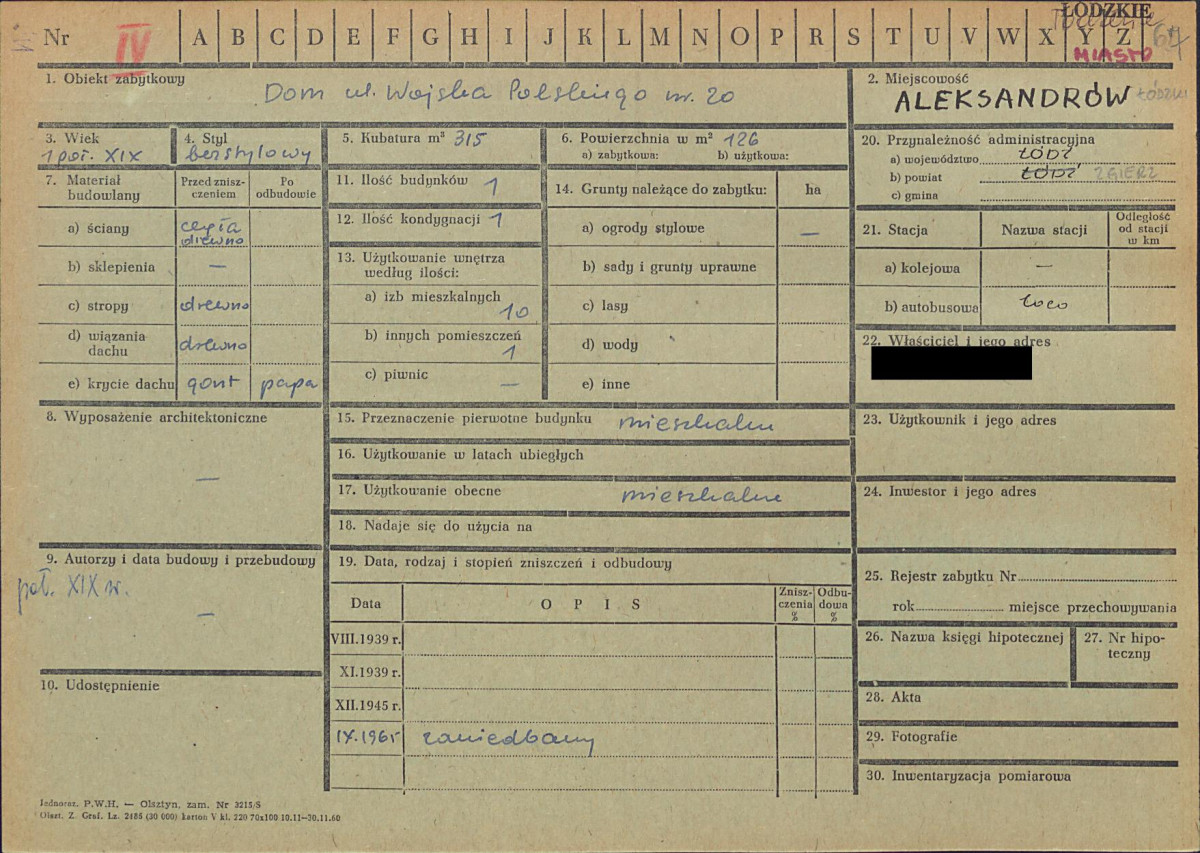 Nr IV A B C D E F G H I J K L M N O P R S T U V W X Y Z
ŁÓDZKIE
MIASTO
1. Obiekt zabytkowy
Dom ul. Wojska Polskiego nr. 20
2. Miejscowość
ALEKSANDRÓW ŁÓDZKI
3. Wiek
1 poł. XIX
4. Styl
bezstylowy
5. Kubatura m³ 315
6. Powierzchnia w m² 126
a) zabytkowa: b) użytkowa:
20. Przynależność administracyjna
a) województwo ŁÓDŹ
b) powiat ŁÓDŹ ZGIERZ
c) gmina
7. Materiał budowlany
Przed znisz-
czeniem
Po
odbudowie
a) ściany cegła
drewno
b) sklepienia —
c) stropy drewno
d) wiązania
dachu drewno
e) krycie dachu gont papa
11. Ilość budynków 1
12. Ilość kondygnacji 1
13. Użytkowanie wnętrza
według ilości:
a) izb mieszkalnych
10
b) innych pomieszczeń
1
c) piwnic —
14. Grunty należące do zabytku: ha
a) ogrody stylowe —
b) sady i grunty uprawne
c) lasy
d) wody
e) inne
21. Stacja Nazwa stacji
Odległość
od stacji
w km
a) kolejowa —
b) autobusowa loco
22. Właściciel i jego adres
8. Wyposażenie architektoniczne
—
15. Przeznaczenie pierwotne budynku mieszkalne
16. Użytkowanie w latach ubiegłych
17. Użytkowanie obecne mieszkalne
18. Nadaje się do użycia na
23. Użytkownik i jego adres
24. Inwestor i jego adres
9. Autorzy i data budowy i przebudowy
poł. XIX w.
—
10. Udostępnienie
19. Data, rodzaj i stopień zniszczeń i odbudowy
Data O P I S
Znisz-
czenia
%
Odbu-
dowa
%
VIII.1939 r.
XI.1939 r.
XII.1945 r.
IX.1965 zaniedbany
25. Rejestr zabytku Nr
rok miejsce przechowywania
26. Nazwa księgi hipotecznej
27. Nr hipo-
teczny
28. Akta
29. Fotografie
30. Inwentaryzacja pomiarowa
Jednoraz. P.W.H. — Olsztyn, zam. Nr 3215/S
Olszt. Z. Graf. Lz. 2486 (30 000) karton V kl. 220 70x100 10.11—30.11.60